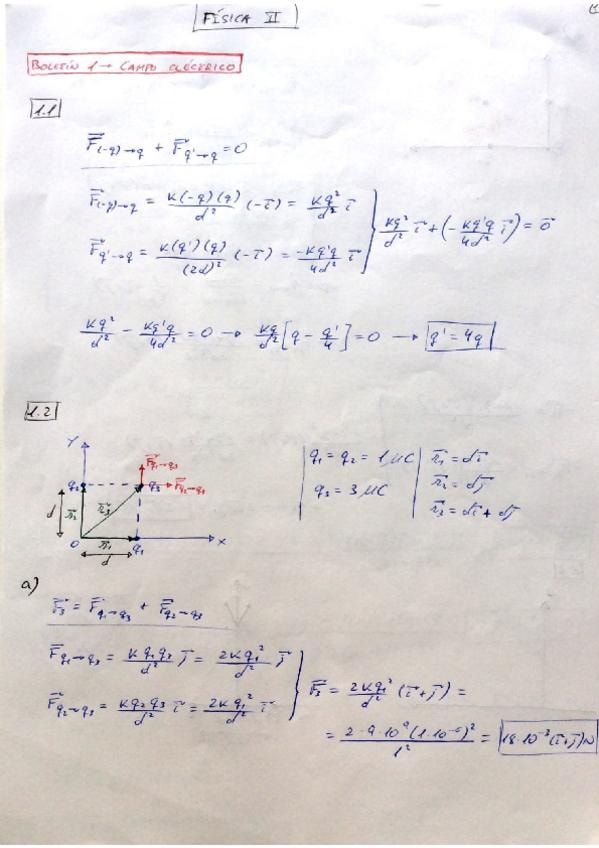 FÍSICA II
BOLETÍN 1 → CAMPO ELÉCTRICO
1.1
F⃗(-q)→q + F⃗q'→q = 0
F⃗(-q)→q = K(-q)(q)/d² (-i⃗) = Kq²/d² i⃗
F⃗q'→q = K(q')(q)/(2d)² (-i⃗) = -Kq'q/4d² i⃗
Kq²/d² i⃗ + (-Kq'q/4d² i⃗) = 0⃗
Kq²/d² - Kq'q/4d² = 0 → Kq/d² [q - q'/4] = 0 → q' = 4q
1.2
Y
F⃗q1→q3
q2 q3 F⃗q2→q3
d r⃗2 r⃗3
O r⃗1 q1 X
d
q1 = q2 = 1 μC
q3 = 3 μC
r⃗1 = d i⃗
r⃗2 = d j⃗
r⃗3 = d i⃗ + d j⃗
a)
F⃗3 = F⃗q1→q3 + F⃗q2→q3
F⃗q1→q3 = K q1 q3/d² j⃗ = 2K q1²/d² j⃗
F⃗q2→q3 = K q2 q3/d² i⃗ = 2K q1²/d² i⃗
F⃗3 = 2K q1²/d² (i⃗ + j⃗) =
= 2·9·10⁹ (1·10⁻⁶)²/1² = 18·10⁻³ (i⃗+j⃗) N